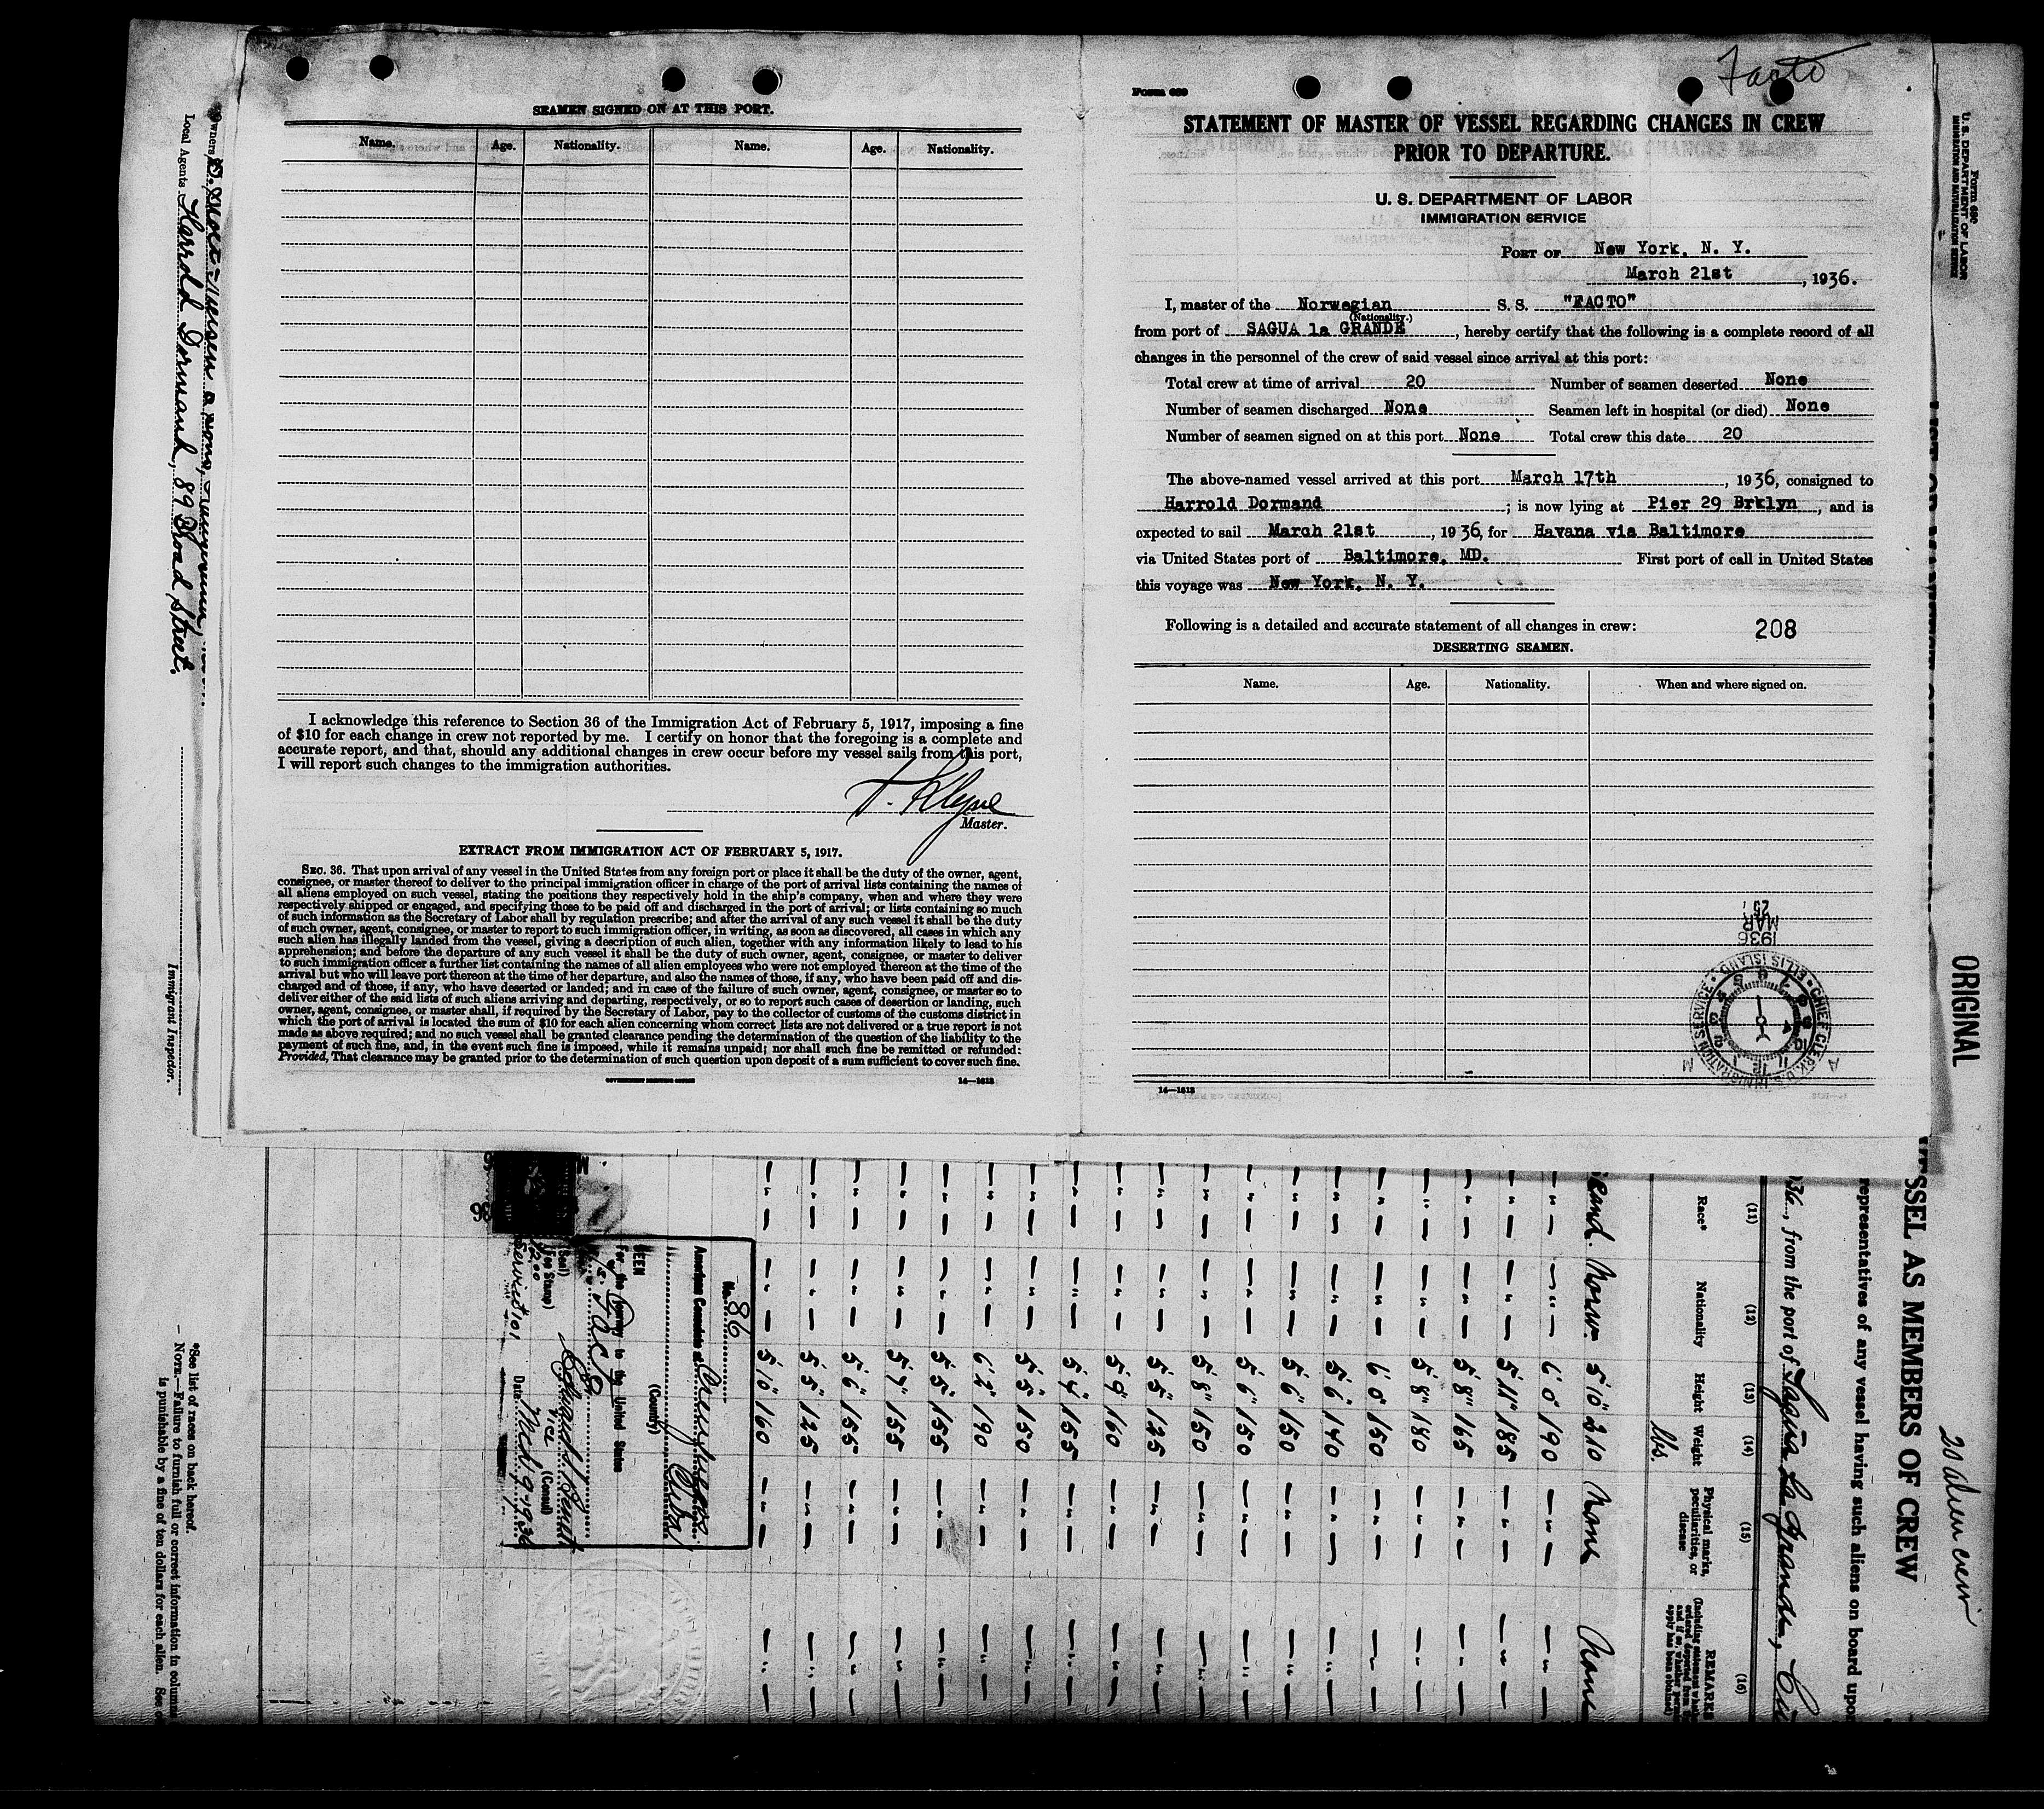 SEAMEN SIGNED ON AT THIS PORT.
Name. Age. Nationality. Name. Age. Nationality.
I acknowledge this reference to Section 36 of the Immigration Act of February 5, 1917, imposing a fine
of $10 for each change in crew not reported by me. I certify on honor that the foregoing is a complete and
accurate report, and that, should any additional changes in crew occur before my vessel sails from this port,
I will report such changes to the immigration authorities.
Master.
EXTRACT FROM IMMIGRATION ACT OF FEBRUARY 5, 1917.
SEC. 36. That upon arrival of any vessel in the United States from any foreign port or place it shall be the duty of the owner, agent,
consignee, or master thereof to deliver to the principal immigration officer in charge of the port of arrival lists containing the names of
all aliens employed on such vessel, stating the positions they respectively hold in the ship's company, when and where they were
respectively shipped or engaged, and specifying those to be paid off and discharged in the port of arrival; or lists containing so much
of such information as the Secretary of Labor shall by regulation prescribe; and after the arrival of any such vessel it shall be the duty
of such owner, agent, consignee, or master to report to such immigration officer, in writing, as soon as discovered, all cases in which any
such alien has illegally landed from the vessel, giving a description of such alien, together with any information likely to lead to his
apprehension; and before the departure of any such vessel it shall be the duty of such owner, agent, consignee, or master to deliver
to such immigration officer a further list containing the names of all alien employees who were not employed thereon at the time of the
arrival but who will leave port thereon at the time of her departure, and also the names of those, if any, who have been paid off and dis-
charged and of those, if any, who have deserted or landed; and in case of the failure of such owner, agent, consignee, or master so to
deliver either of the said lists of such aliens arriving and departing, respectively, or so to report such cases of desertion or landing, such
owner, agent, consignee, or master, shall, if required by the Secretary of Labor, pay to the collector of customs of the customs district in
which the port of arrival is located the sum of $10 for each alien concerning whom correct lists are not delivered or a true report is not
made as above required; and no such vessel shall be granted clearance pending the determination of the question of the liability to the
payment of such fine, and, in the event such fine is imposed, while it remains unpaid; nor shall such fine be remitted or refunded:
Provided, That clearance may be granted prior to the determination of such question upon deposit of a sum sufficient to cover such fine.
GOVERNMENT PRINTING OFFICE 14—1613
Facto
Form 689
STATEMENT OF MASTER OF VESSEL REGARDING CHANGES IN CREW
PRIOR TO DEPARTURE.
U. S. DEPARTMENT OF LABOR
IMMIGRATION SERVICE
PORT OF New York, N. Y.
March 21st, 1936.
I, master of the Norwegian S. S. "FACTO"
(Nationality.)
from port of SAGUA la GRANDE, hereby certify that the following is a complete record of all
changes in the personnel of the crew of said vessel since arrival at this port:
Total crew at time of arrival 20 Number of seamen deserted None
Number of seamen discharged None Seamen left in hospital (or died) None
Number of seamen signed on at this port None Total crew this date 20
The above-named vessel arrived at this port March 17th, 1936, consigned to
Harrold Dormand; is now lying at Pier 29 Brklyn, and is
expected to sail March 21st, 1936, for Havana via Baltimore
via United States port of Baltimore, MD. First port of call in United States
this voyage was New York, N. Y.
Following is a detailed and accurate statement of all changes in crew: 208
DESERTING SEAMEN.
Name. Age. Nationality. When and where signed on.
1936 MAR 25
CHIEF CLERK U.S. IMMIGRATION SERVICE • ELLIS ISLAND
A M
14—1613
Local Agents Harrold Dormand, 89 Broad Street.
Immigrant Inspector.
U. S. DEPARTMENT OF LABOR
IMMIGRATION AND NATURALIZATION SERVICE
ORIGINAL
20 alien crew
SSEL AS MEMBERS OF CREW
representatives of any vessel having such aliens on board upon
36, from the port of Sagua La Grande, Cu
(11) (12) (13) (14) (15) (16)
Race* Nationality Height Weight Physical marks, peculiarities, or disease REMARKS
lbs.
Scand. Norw. 5'10" 210 None None
" " 6'0" 190 " "
" " 5'11" 185 " "
" " 5'8" 165 " "
" " 5'8" 180 " "
" " 6'0" 150 " "
" " 5'6" 140 " "
" " 5'6" 150 " "
" " 5'6" 150 " "
" " 5'8" 150 " "
" " 5'5" 125 " "
" " 5'9" 160 " "
" " 5'4" 155 " "
" " 5'5" 150 " "
" " 6'2" 190 " "
" " 5'5" 155 " "
" " 5'7" 155 " "
" " 5'6" 155 " "
" " 5'5" 125 " "
" " 5'10" 160 " "
No. 86
American Consulate at Cienfuegos
Cuba
(Country)
SEEN
For the journey to the United States
(Consul)
(Seal)
(Fee Stamp)
Date Mch. 9-1936
*See list of races on back hereof.
NOTE.—Failure to furnish full or correct information in columns
is punishable by a fine of ten dollars for each alien. See